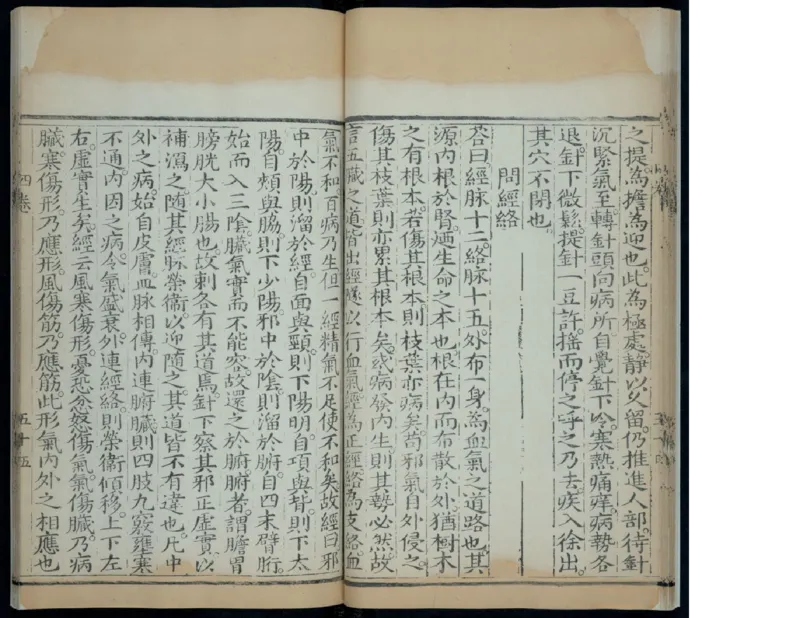 之提。為擔為迎也。此為極處。靜以久留。仍推進人部。待針
沉緊氣至。轉針頭向病所。自覺針下冷。寒熱痛痒。病勢各
退。針下微鬆。提針一豆許。搖而停之。呼之乃去。疾入徐出。
其穴不閉也。
問經絡
荅曰經脉十二。絡脉十五。外布一身。為血氣之道路也。其
源內根於腎。廼生命之本也。根在內而布散於外。猶樹木
之有根本。若傷其根本。則枝葉亦病矣。苟邪氣自外侵之。
傷其枝葉。則亦累其根本矣。或病發內生。則其勢必然。故
言五臟之道。皆出經隧。以行血氣。經為正經。絡為支絡。血
氣不和。百病乃生。但一經精氣不足。便不和矣。故經曰。邪
中於陽。則溜於經。自面與頸。則下陽明。自項與背。則下太
陽。自頰與脇。則下少陽。邪中於陰。則溜於腑。自四末臂胻
始。而入三陰。臟氣實而不能容。故還之於腑。腑者。謂膽胃
膀胱大小腸也。故刺各有其道焉。針下察其邪正虛實以
補瀉之。隨其經脉榮衛以迎隨之。其道皆不有違也。凡中
外之病。始自皮膚。血脉相傳。內連腑臟。則四肢九竅壅塞
不通。內因之病。令氣盛衰。外連經絡。則榮衛傾移。上下左
右。虛實生矣。經云風寒傷形。憂恐忿怒傷氣。氣傷臟。乃病
臟。寒傷形。乃應形。風傷筋。乃應筋。此形氣內外之相應也
四卷
五十五